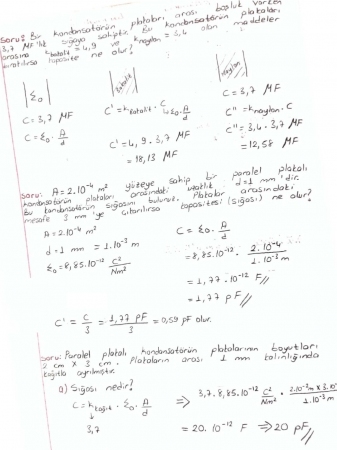 Soru: Bir kondansatörün plakaları arası boşluk varken
3,7 MF'lık sığaya sahiptir. Bu kondansatörün plakaları
arasına k bakalit = 4,9 ve k naylon = 3,4 olan maddeler
kapasite ne olur?
Bakalit
Naylon
ε0
C = 3,7 MF
C = ε0 . A/d
C' = k bakalit . ε0 . A/d
C' = 4,9 . 3,7 MF
= 18,13 MF
C = 3,7 MF
C'' = k naylon . C
C'' = 3,4 . 3,7 MF
= 12,58 MF
Soru: A = 2.10⁻⁴ m² yüzeye sahip bir paralel plakalı
kondansatörün plakaları arasındaki uzaklık d = 1 mm'dir.
Bu kondansatörün sığasını bulunuz. Plakalar arasındaki
mesafe 3 mm'ye çıkarılırsa kapasitesi (sığası) ne olur?
A = 2.10⁻⁴ m²
d = 1 mm = 1.10⁻³ m
ε0 = 8,85.10⁻¹² C²/Nm²
C = ε0 . A/d
= 8,85.10⁻¹² . 2.10⁻⁴/1.10⁻³
= 1,77 . 10⁻¹² F //
= 1,77 pF //
C' = C/3 = 1,77 pF/3 = 0,59 pF olur.
Soru: Paralel plakalı kondansatörün plakalarının boyutları
2 cm x 3 cm. Plakaların arası 1 mm kalınlığında
kağıtla ayrılmıştır.
a) Sığası nedir?
C = k kağıt . ε0 . A/d
3,7
⇒ 3,7.8,85.10⁻¹² C²/Nm² . 2.10⁻²m x 3.10/1.10⁻³ m
= 20.10⁻¹² F ⇒ 20 pF //